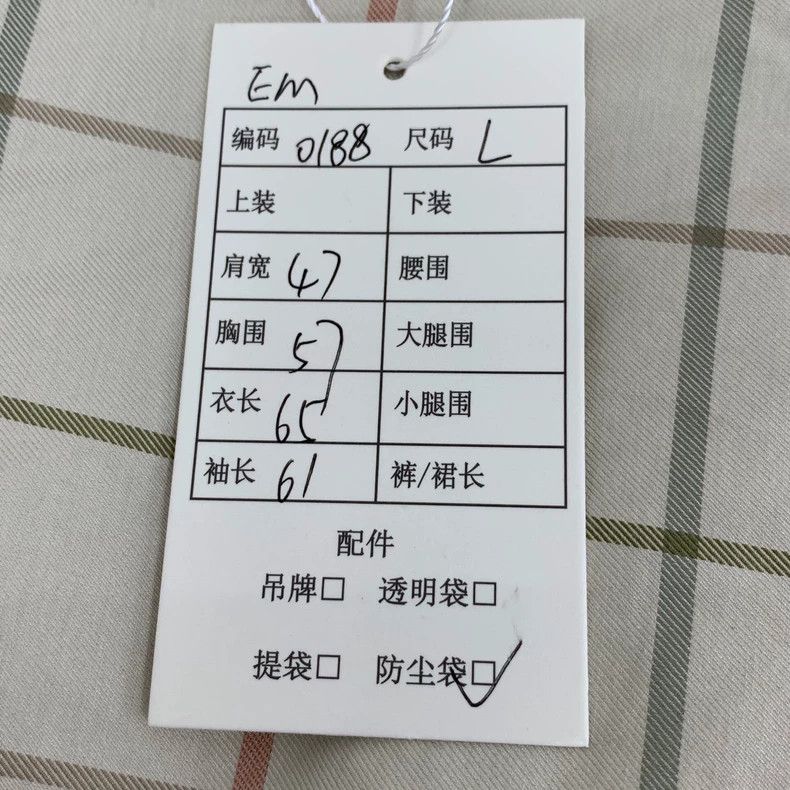 Em
编码 0188 尺码 L
上装 下装
肩宽 47 腰围
胸围 57 大腿围
衣长 65 小腿围
袖长 61 裤/裙长
配件
吊牌□ 透明袋□
提袋□ 防尘袋□✓